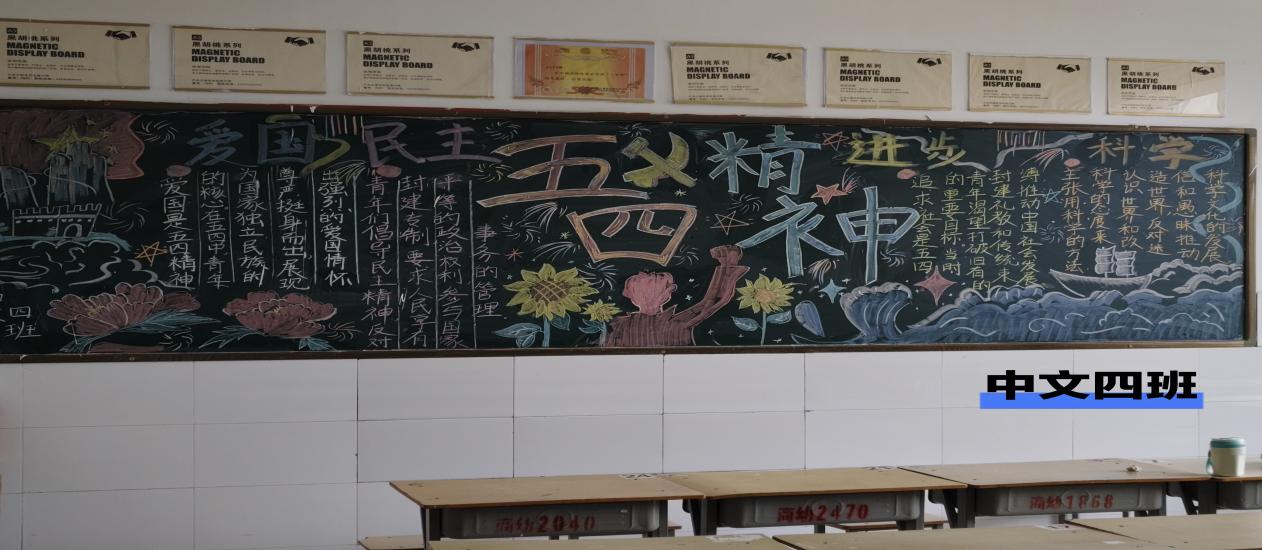 黑胡桃系列
MAGNETIC
DISPLAY BOARD
黑胡桃系列
MAGNETIC
DISPLAY BOARD
黑胡桃系列
MAGNETIC
DISPLAY BOARD
黑胡桃系列
MAGNETIC
DISPLAY BOARD
黑胡桃系列
MAGNETIC
DISPLAY BOARD
黑胡桃系列
MAGNETIC
DISPLAY BOARD
黑胡桃系列
MAGNETIC
DISPLAY BOARD
爱国
爱国是五四精神
的核心在五四中青年
为国家独立民族的
尊严挺身而出展现
出强烈的爱国情怀
民主
青年们倡导民主精神反对
封建专制 要求人民享有
平等的政治权利 参与国家
事务的管理
五四
精神
进步
追求社会是五四
的重要目标 当时
青年渴望打破旧有的
封建礼教和传统束
缚推动中国社会发展
科学
主张用科学的方法
科学的态度来
认识世界和改
造世界反迷
信和愚昧推动
科学文化的发展
四班
中文四班
2040
2470
1868